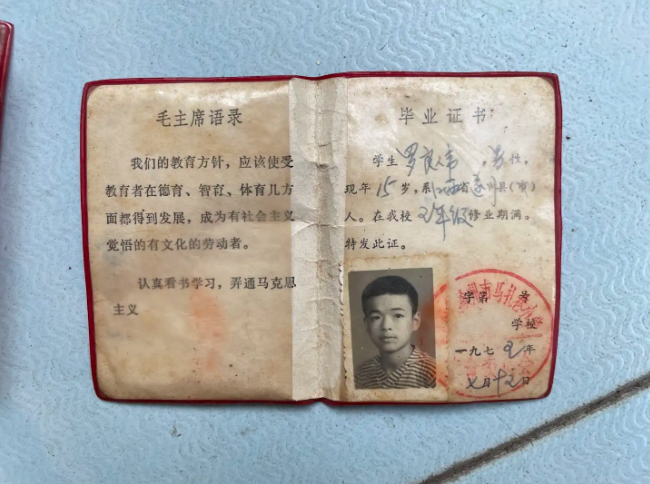 毛主席语录
我们的教育方针，应该使受
教育者在德育、智育、体育几方
面都得到发展，成为有社会主义
觉悟的有文化的劳动者。
认真看书学习，弄通马克思
主义
毕业证书
学生 罗 性，
现年15岁，系 省 县（市）
人。在我校五年级修业期满。
特发此证。
字第 为
学校
一九七五年
七月十五日